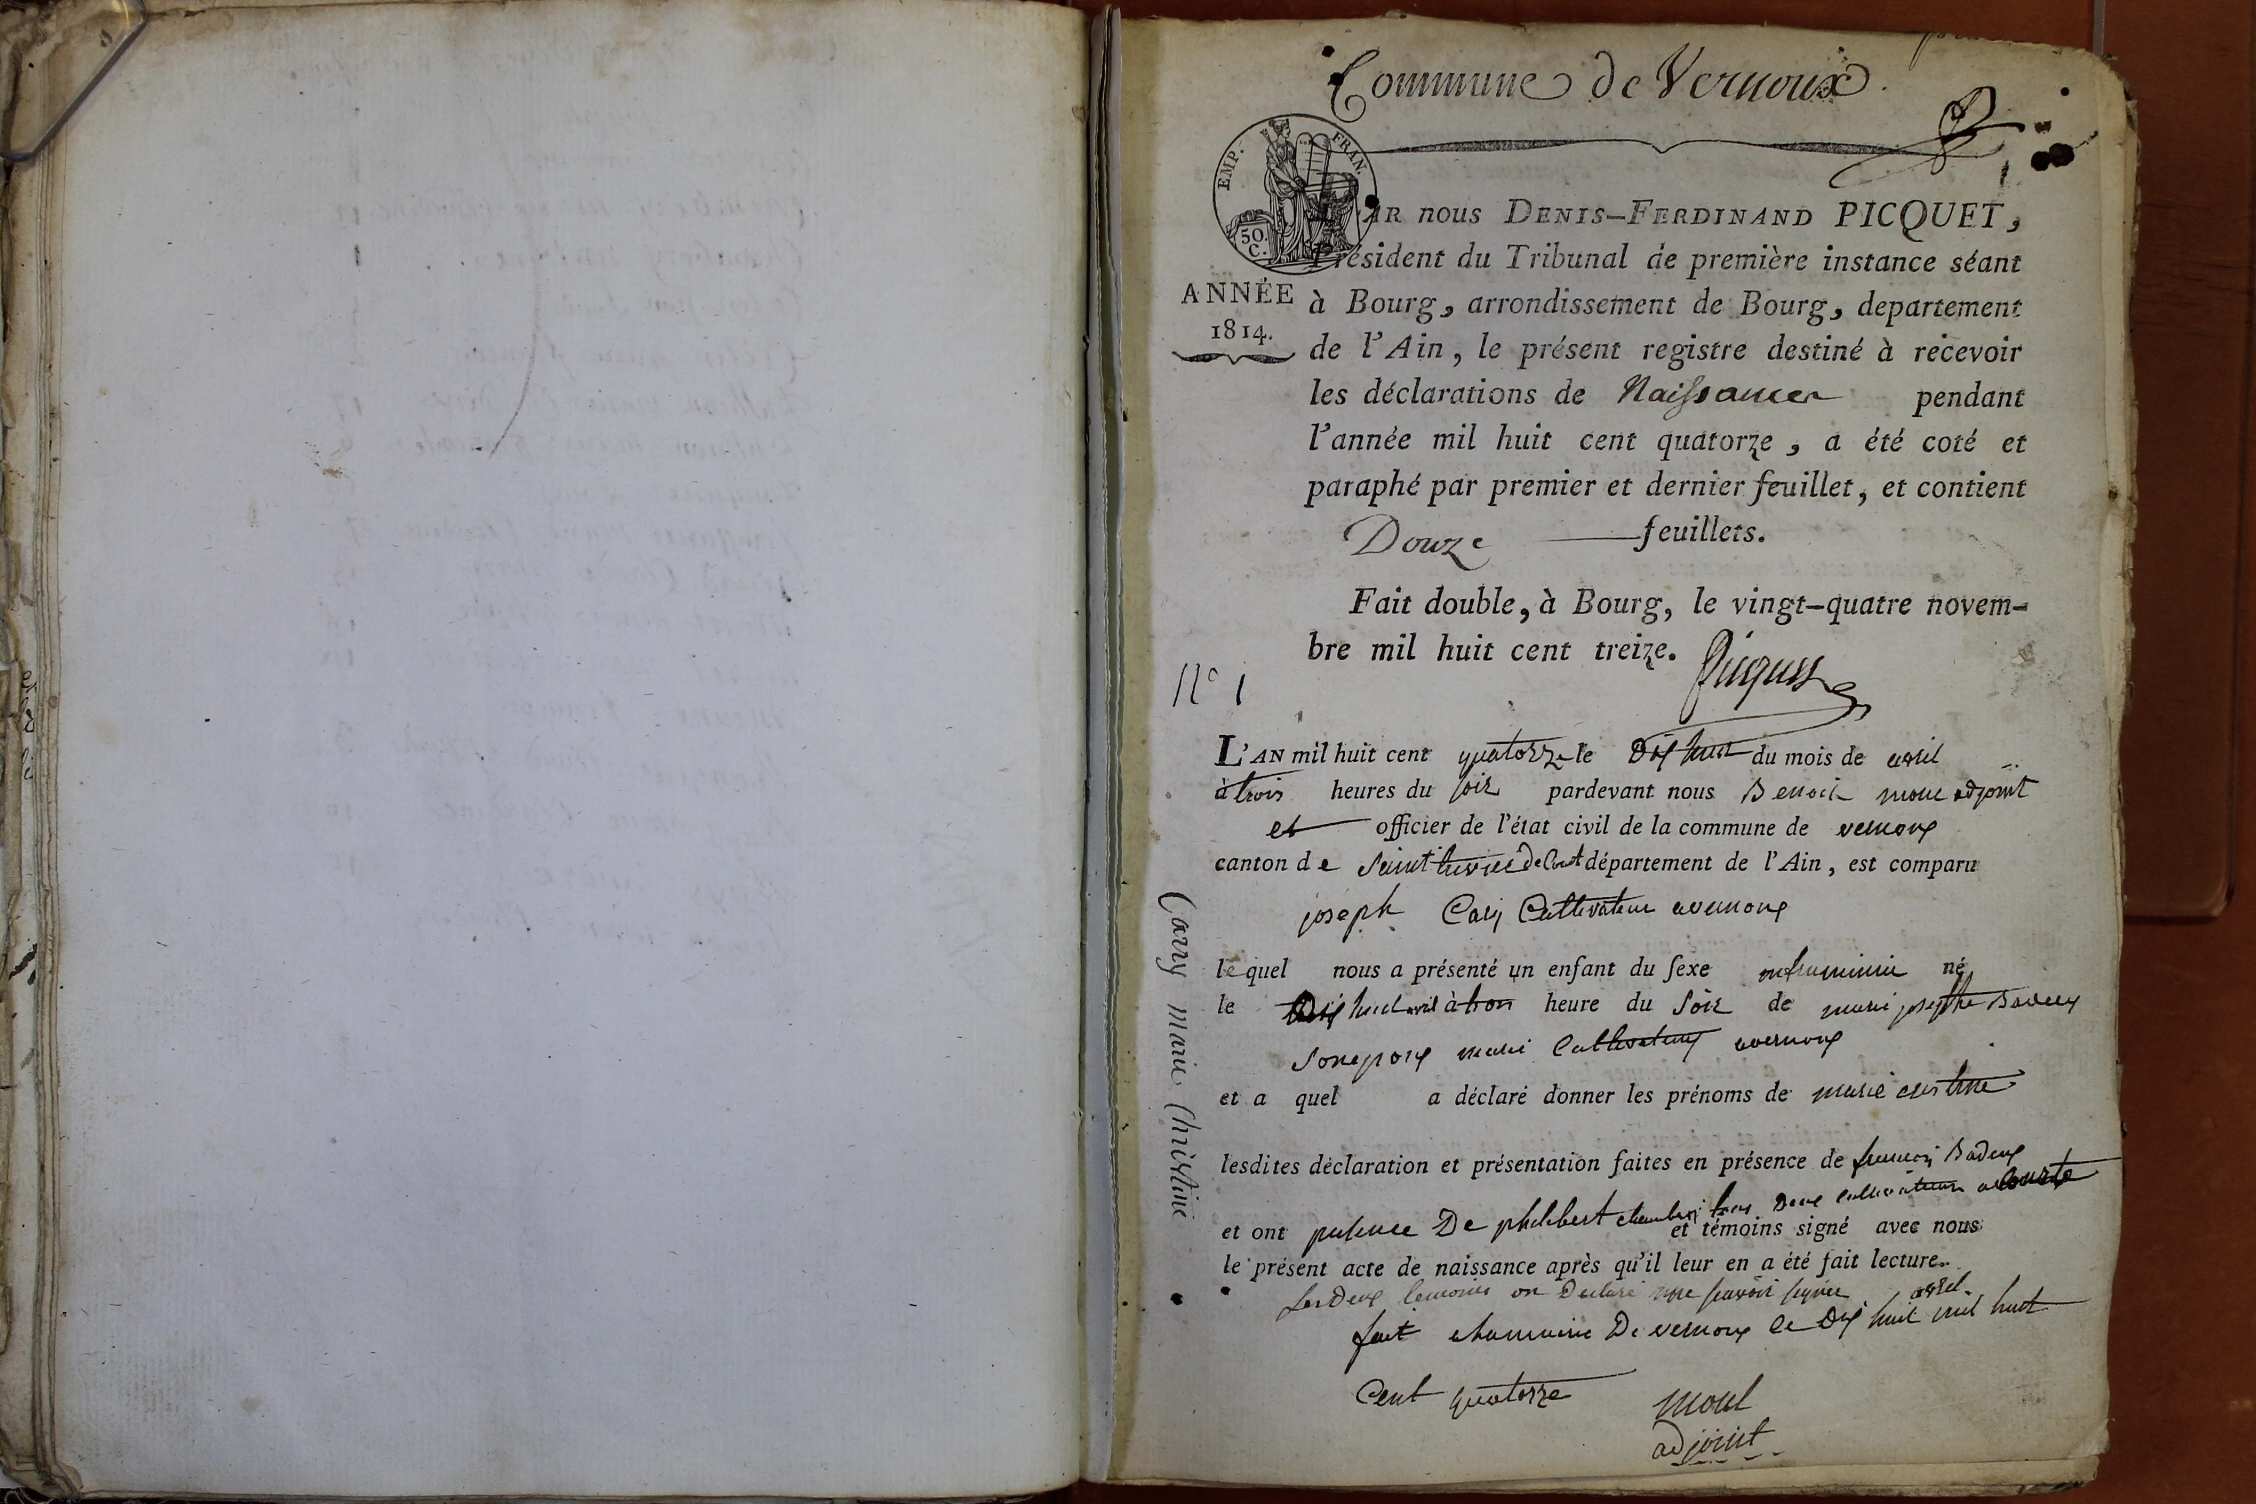 Commune de Vernoux.
EMP. FRAN.
50.
C.
PAR nous DENIS–FERDINAND PICQUET,
Président du Tribunal de première instance séant
ANNÉE
1814.
à Bourg, arrondissement de Bourg, departement
de l'Ain, le présent registre destiné à recevoir
les déclarations de Naissances pendant
l'année mil huit cent quatorze, a été coté et
paraphé par premier et dernier feuillet, et contient
Douze feuillets.
Fait double, à Bourg, le vingt-quatre novem-
bre mil huit cent treize.
Picquet
N° 1
L'AN mil huit cent quatorze le Dix huit du mois de avril
à trois heures du soir pardevant nous Benoit adjoint
et officier de l'état civil de la commune de vernoux
canton de Saint trivier de Court département de l'Ain, est comparu
joseph Carij Cultivateur avernoux
Carry marie Christine
lequel nous a présenté un enfant du sexe né
le Dix huit avril à trois heure du Soir de marie josephte Badeux
cultivateur avernoux
et a quel a déclaré donner les prénoms de marie cristine
lesdites déclaration et présentation faites en présence de francois Badeux
et ont presence De philibert tous Deux cultivateur acourte
et témoins signé avec nous
le présent acte de naissance après qu'il leur en a été fait lecture.
les Deux temoins on Declaré ne savoir signer
fait De vernoux le Dix huit avril mil huit
Cent quatorze
adjoint